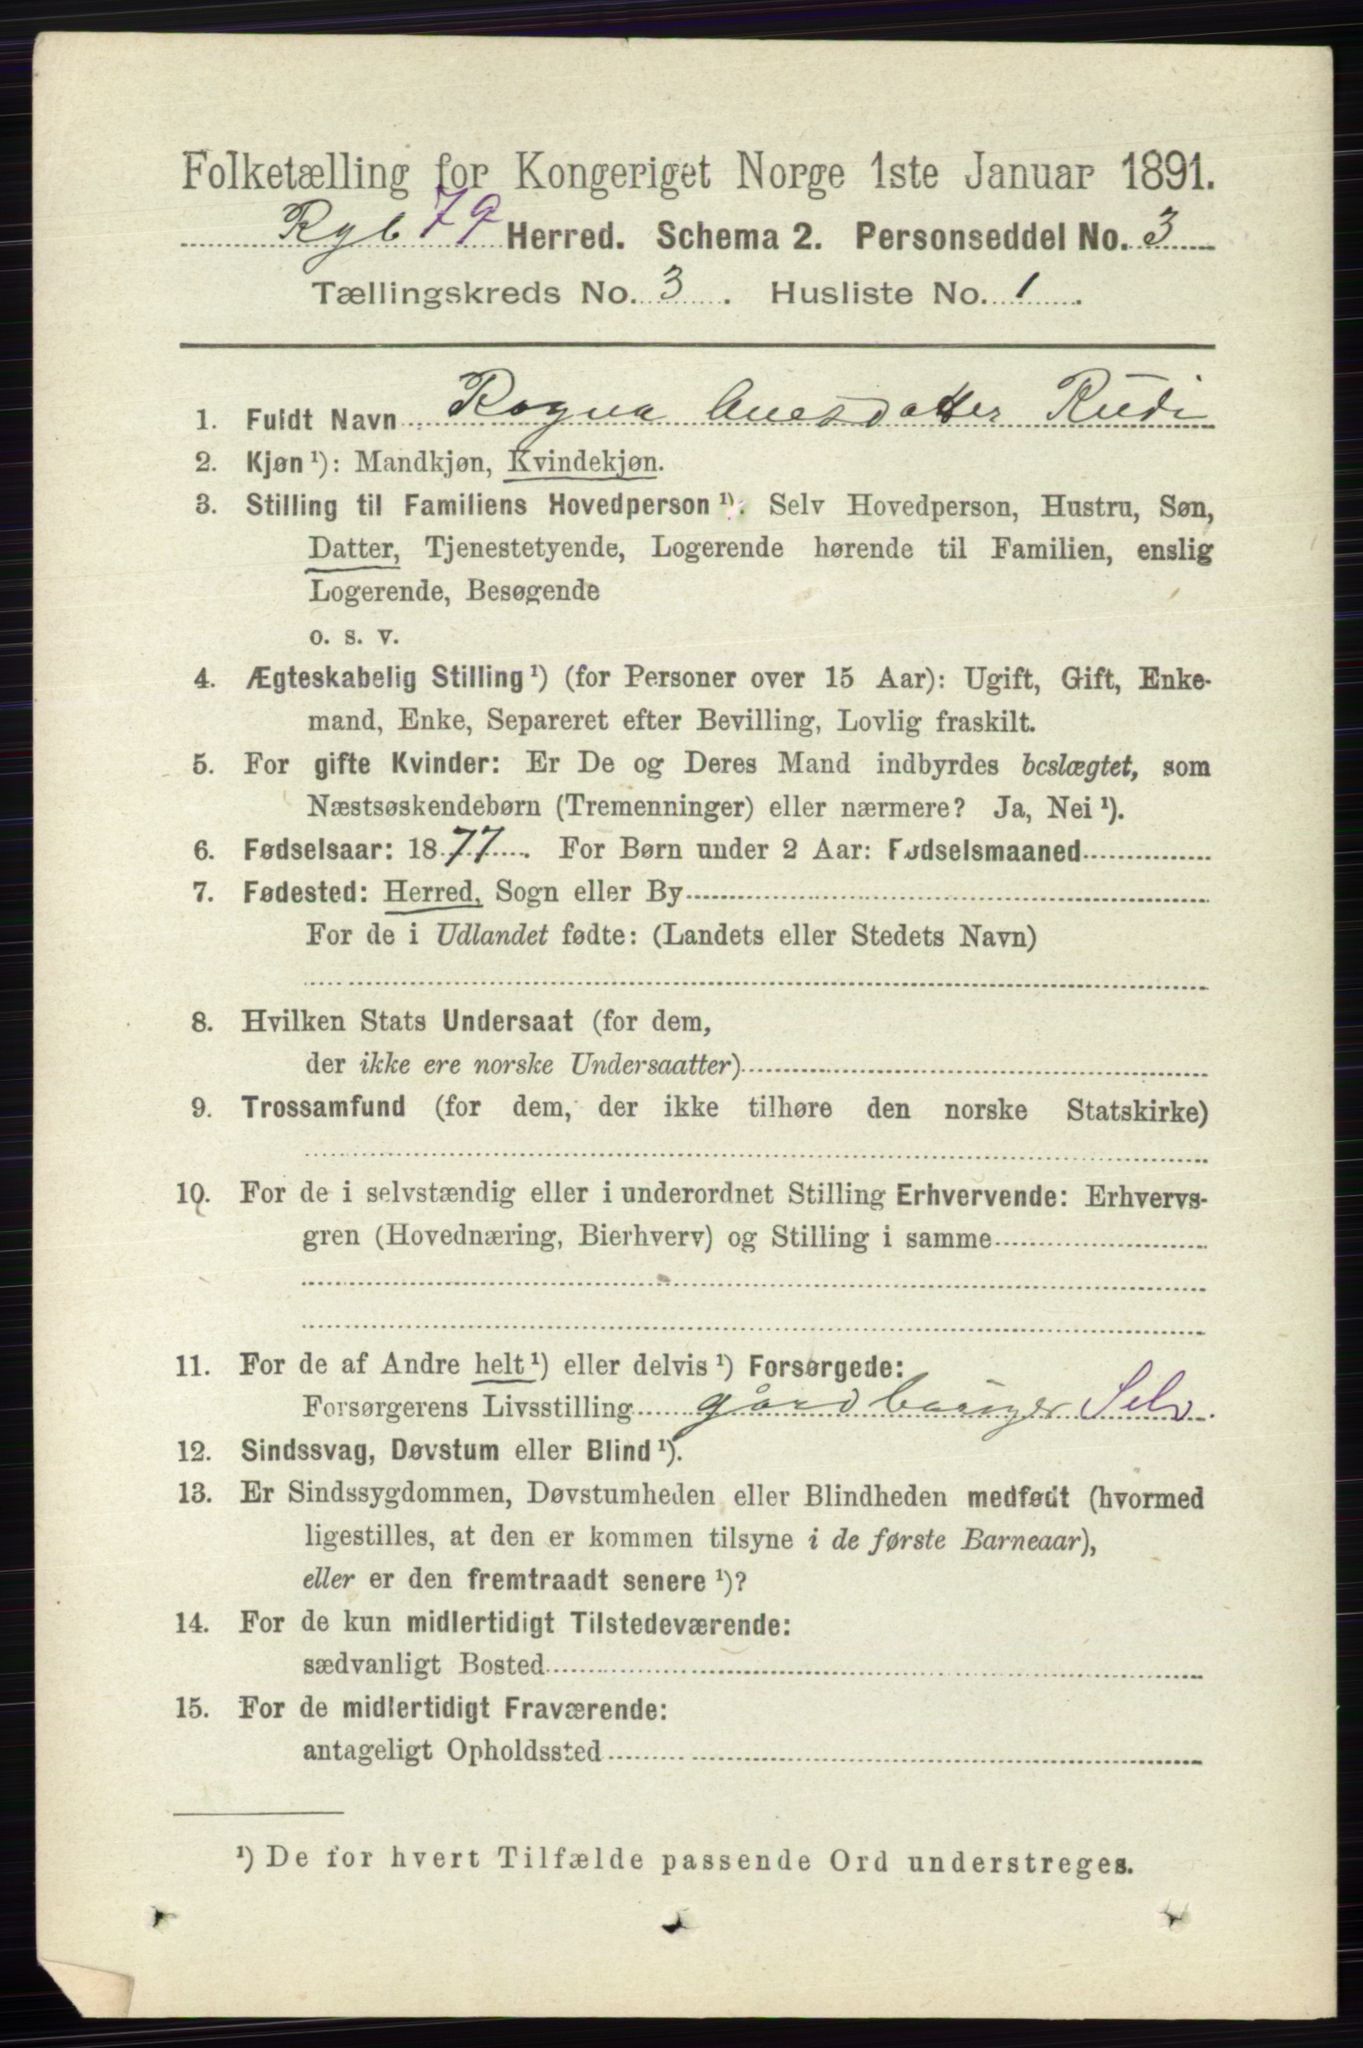 Folketælling for Kongeriget Norge 1ste Januar 1891.
79 Herred. Schema 2. Personseddel No. 3
Tællingskreds No. 3. Husliste No. 1.
1. Fuldt Navn Ragna datter Rudi
2. Kjøn ¹): Mandkjøn, Kvindekjøn.
3. Stilling til Familiens Hovedperson ¹): Selv Hovedperson, Hustru, Søn,
Datter, Tjenestetyende, Logerende hørende til Familien, enslig
Logerende, Besøgende
o. s. v.
4. Ægteskabelig Stilling ¹) (for Personer over 15 Aar): Ugift, Gift, Enke-
mand, Enke, Separeret efter Bevilling, Lovlig fraskilt.
5. For gifte Kvinder: Er De og Deres Mand indbyrdes beslægtet, som
Næstsøskendebørn (Tremenninger) eller nærmere? Ja, Nei ¹).
6. Fødselsaar: 1877. For Børn under 2 Aar: Fødselsmaaned
7. Fødested: Herred, Sogn eller By
For de i Udlandet fødte: (Landets eller Stedets Navn)
8. Hvilken Stats Undersaat (for dem,
der ikke ere norske Undersaatter)
9. Trossamfund (for dem, der ikke tilhøre den norske Statskirke)
10. For de i selvstændig eller i underordnet Stilling Erhvervende: Erhvervs-
gren (Hovednæring, Bierhverv) og Stilling i samme
11. For de af Andre helt ¹) eller delvis ¹) Forsørgede:
Forsørgerens Livsstilling gårdbruger Selv.
12. Sindssvag, Døvstum eller Blind ¹).
13. Er Sindssygdommen, Døvstumheden eller Blindheden medfødt (hvormed
ligestilles, at den er kommen tilsyne i de første Barneaar),
eller er den fremtraadt senere ¹)?
14. For de kun midlertidigt Tilstedeværende:
sædvanligt Bosted
15. For de midlertidigt Fraværende:
antageligt Opholdssted
¹) De for hvert Tilfælde passende Ord understreges.